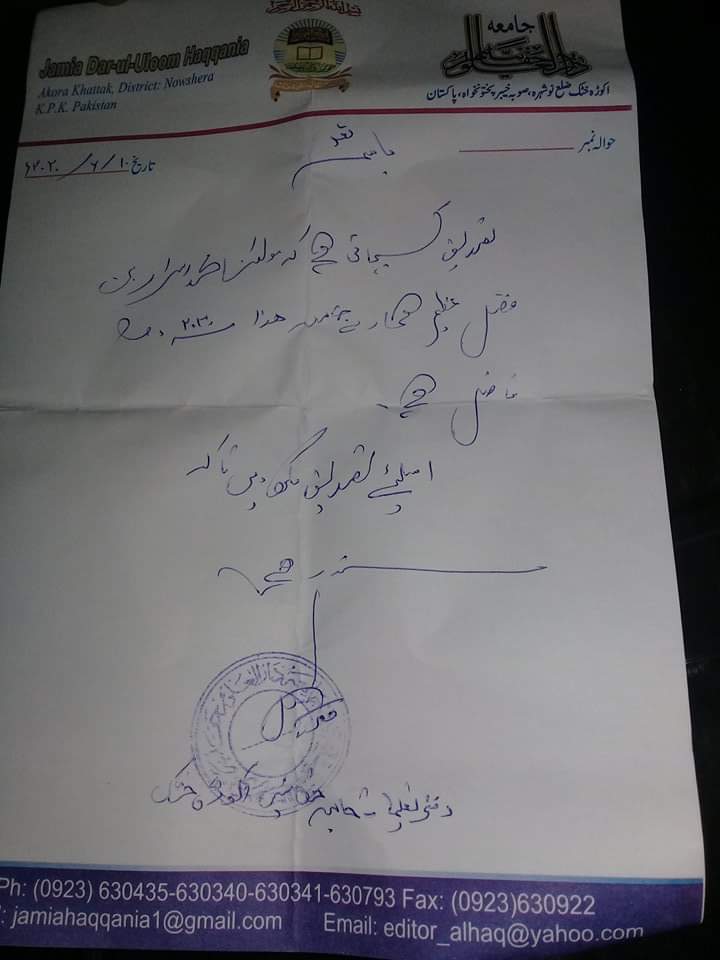 بسم اللہ الرحمن الرحیم
Jamia Dar-ul-Uloom Haqqania
Akora Khattak, District: Nowshera
K.P.K. Pakistan
جامعہ
دارالعلوم حقانیہ
اکوڑہ خٹک ضلع نوشہرہ، صوبہ خیبر پختونخواہ، پاکستان
حوالہ نمبر
تاریخ ۱۰/۶/۲۰۲۰ء
تصدیق کیجاتی ہے کہ مولانا اسرار بن
فضل عظیم ھمارے جامعہ ھذا سنہ
فاضل ہے۔
اسلئے تصدیق لکھ دیں تاکہ
سند رہے
دفتر تعلیمات حقانیہ اکوڑہ خٹک
Ph: (0923) 630435-630340-630341-630793 Fax: (0923)630922
: jamiahaqqania1@gmail.com Email: editor_alhaq@yahoo.com